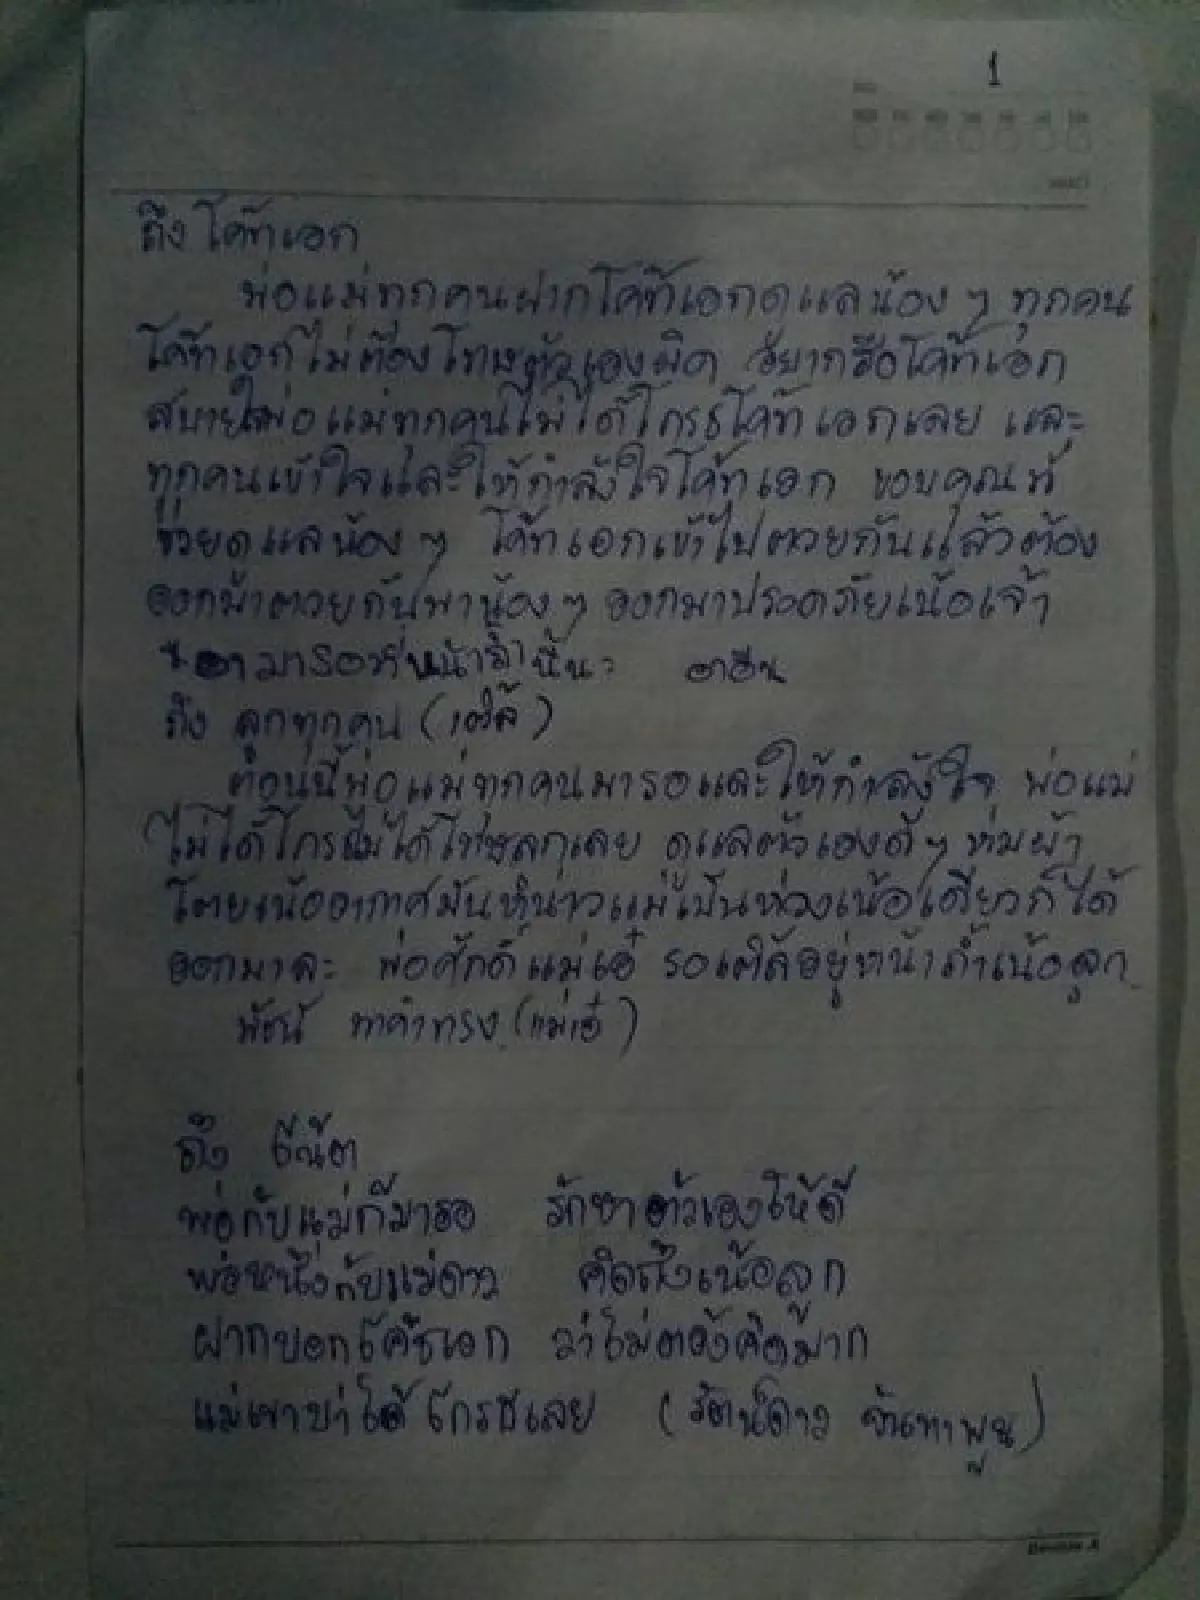 1
ถึง โค๊ทเอก
พ่อแม่ทุกคนฝากโค๊ทเอกดูแลน้อง ๆ ทุกคน
โค๊ทเอกไม่ต้องโทษตัวเองผิด อยากให้โค๊ทเอก
สบายใจพ่อแม่ทุกคนไม่ได้โกรธโค๊ทเอกเลย และ
ทุกคนเข้าใจและให้กำลังใจโค๊ทเอก ขอบคุณที่
ช่วยดูแลน้อง ๆ โค๊ทเอกเข้าไปตวยกันแล้วต้อง
ออกมาตวยกันพาน้อง ๆ ออกมาปรอดภัยเน้อเจ้า
อามารอที่หน้าถ้ำ
ถึง ลูกทุกคน (เติ้ล)
ตอนนี้พ่อแม่ทุกคนมารอและให้กำลังใจ พ่อแม่
ไม่ได้โกรธไม่ได้โทษลูกเลย ดูแลตัวเองดี ๆ ห่มผ้า
โตยเน้ออากาศมันหนาวแม่เป็นห่วงเน้อเดียวก็ได้
ออกมาละ พ่อศักดิ์แม่เอ๋ รอเติ้ลอยู่หน้าถ้ำเน้อลูก
พัชนี ทาคำทรง (แม่เอ๋)
ถึง ธีณัต
พ่อกับแม่ก็มารอ รักษาตัวเองให้ดี
พ่อหนึ่งกับแม่ดาว คิดถึงเน้อลูก
ฝากบอกโค้ชเอก ว่าไม่ต้องคิดมาก
แม่เขาบ่าได้โกรธเลย (รัตน์ดาว จันทาพูน)